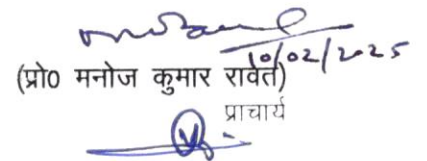 10/02/2025
(प्रो0 मनोज कुमार रावत)
प्राचार्य